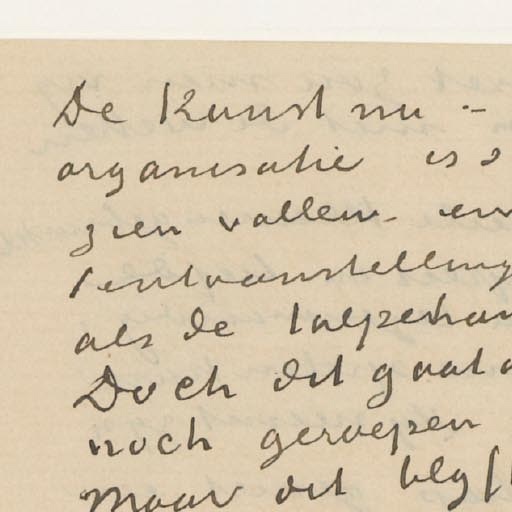 De Kunst nu –
organisatie is
zien vallen – en
tentoonstelling
als de tulpehan
Doch dit gaat
noch geroepen
Maar dit blyft